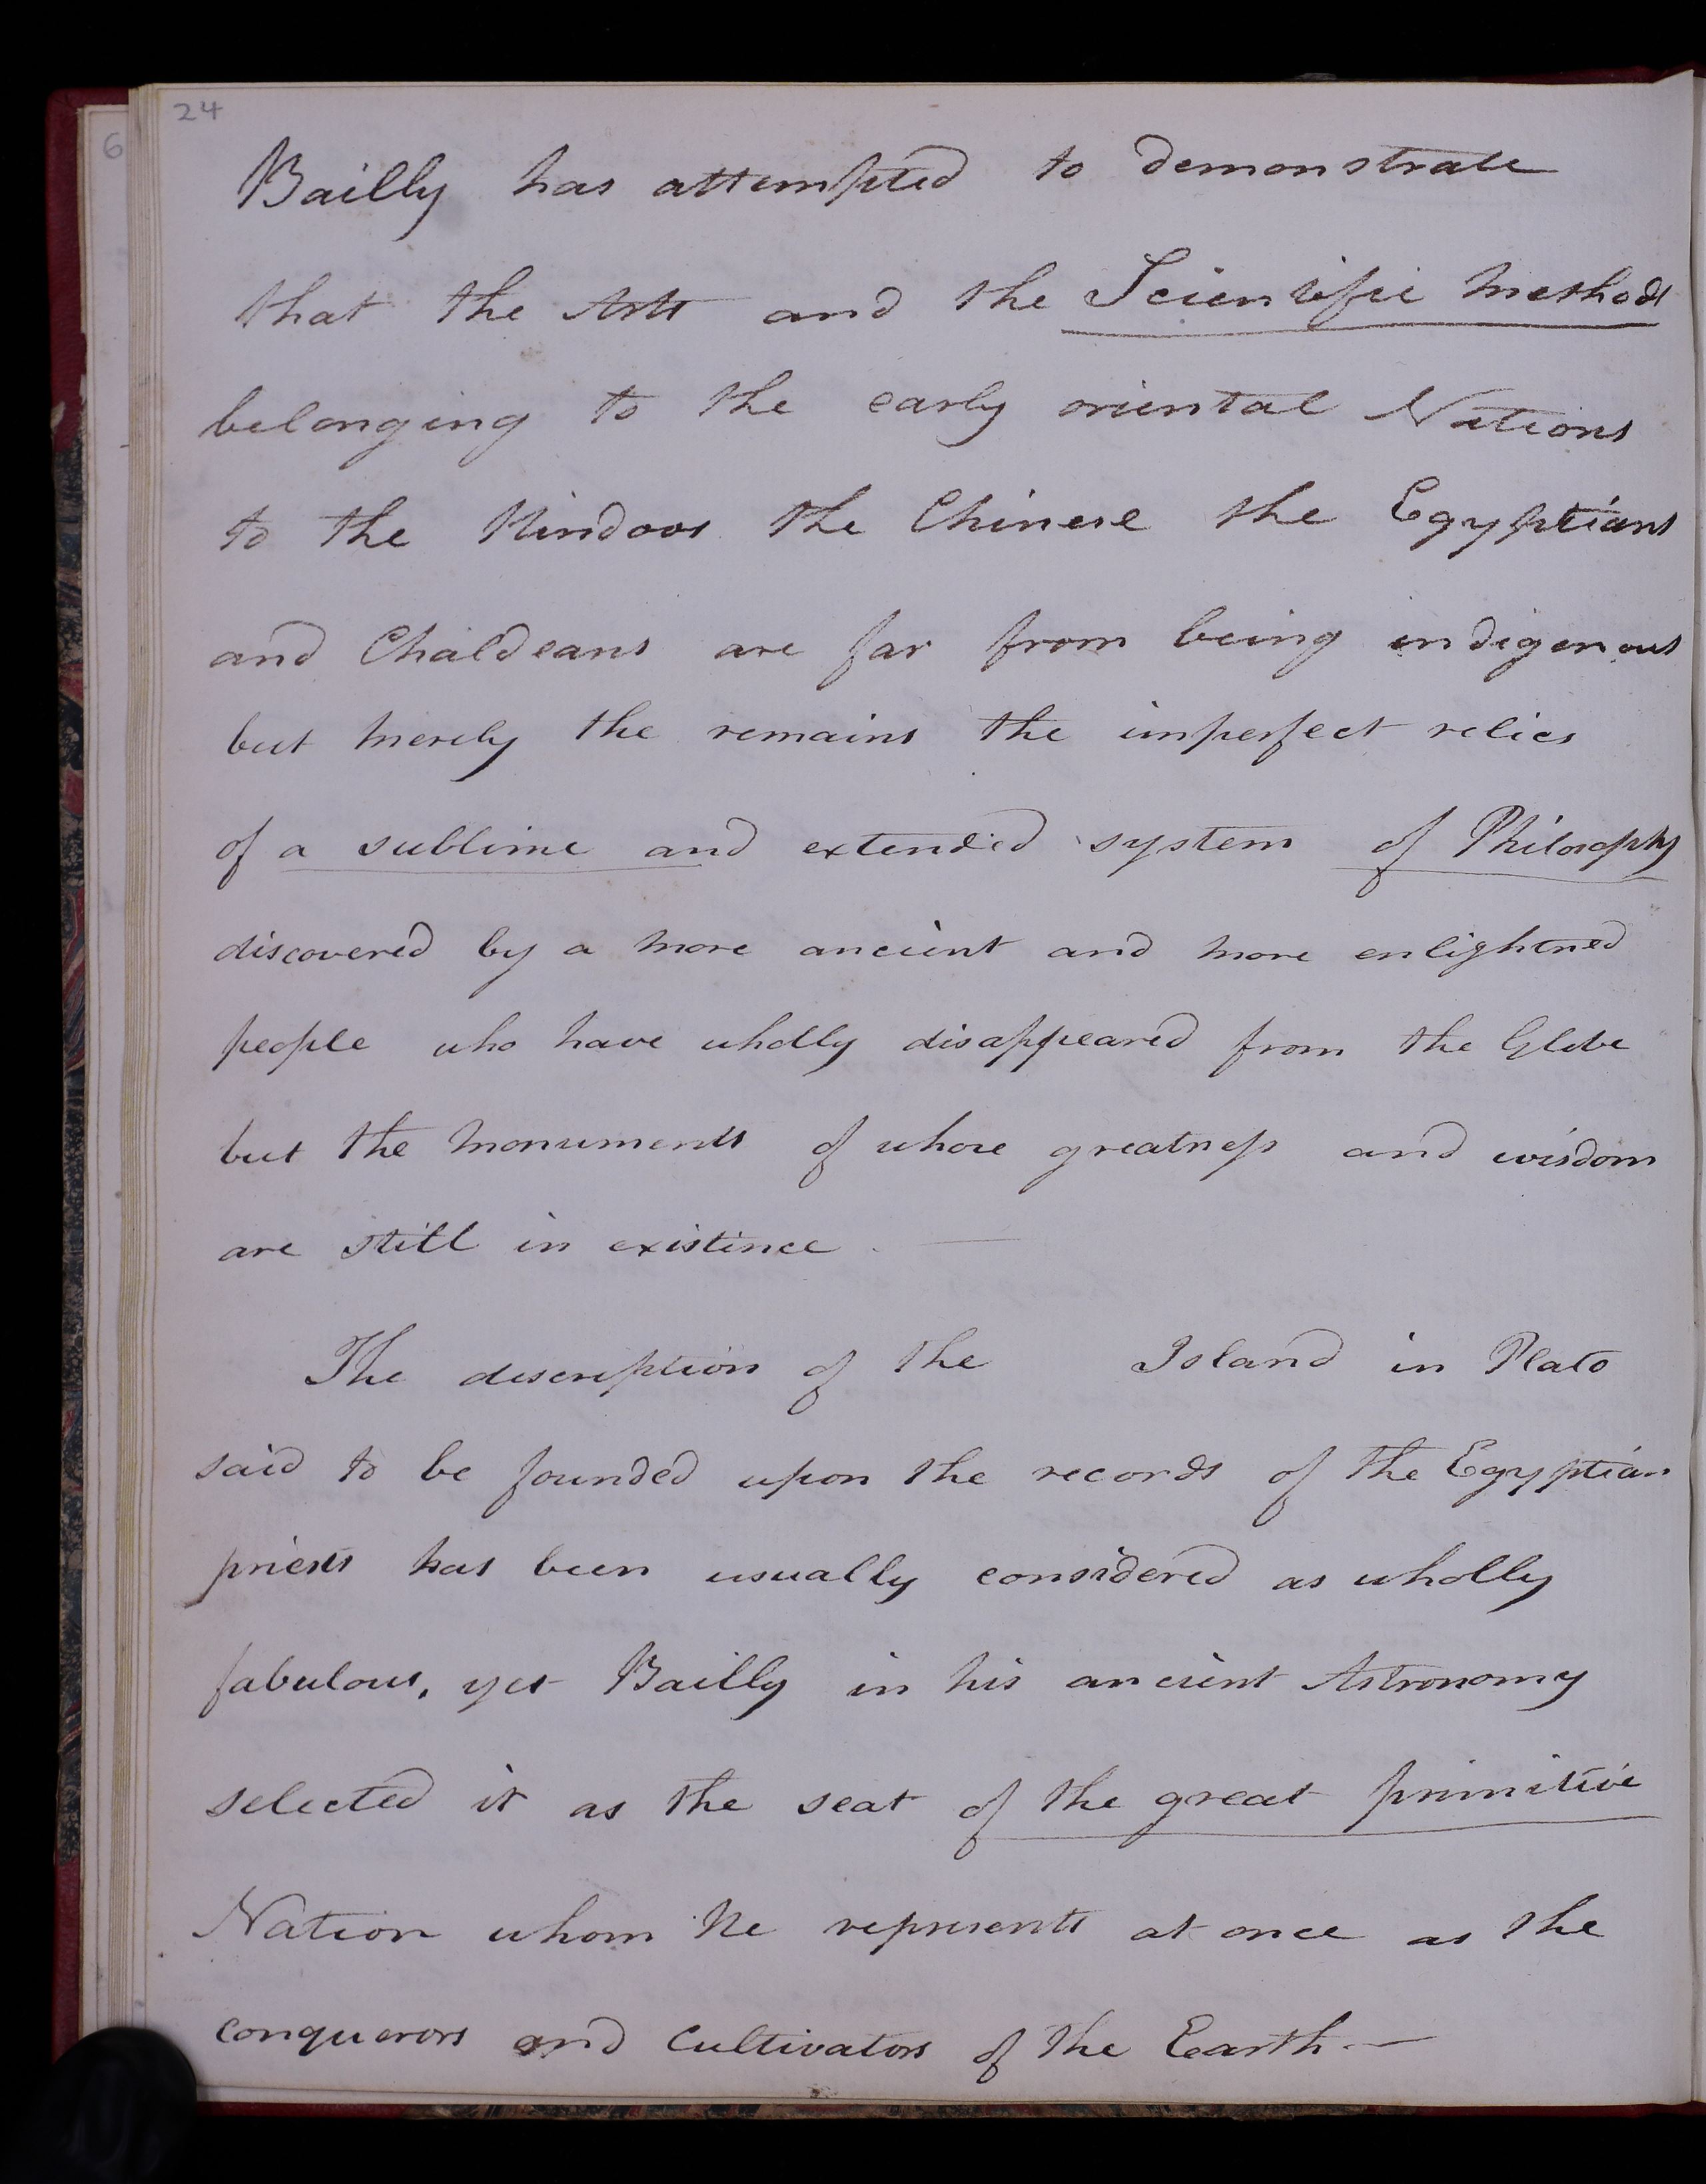 24
6
Bailly has attempted to demonstrate
that the Arts and the Scientific methods
belonging to the early oriental Nations
to the Hindoos the Chinese the Egyptians
and Chaldeans are far from being indigenous
but merely the remains the imperfect relics
of a sublime and extended system of Philosophy
discovered by a more ancient and more enlightned
people who have wholly disappeared from the Globe
but the monuments of whose greatness and wisdom
are still in existence. —
The description of the Island in Plato
said to be founded upon the records of the Egyptian
priests has been usually considered as wholly
fabulous, yet Bailly in his ancient Astronomy
selected it as the seat of the great primitive
Nation whom He represents at once as the
conquerors and cultivators of the Earth. —